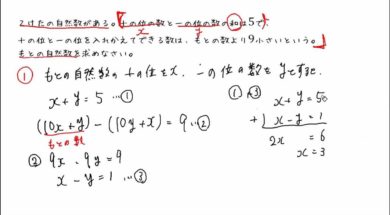 2けたの自然数がある。十の位の数と一の位の数の和は5で
十の位と一の位を入れかえてできる数は、もとの数より9小さいという。
もとの自然数を求めなさい。
x y
① もとの自然数の十の位をx、一の位の数をyとすると、
x + y = 5 …①
(10x + y) - (10y + x) = 9 …②
もとの数
② 9x - 9y = 9
x - y = 1 …③
①③ x + y = 5
+) x - y = 1
2x = 6
x = 3